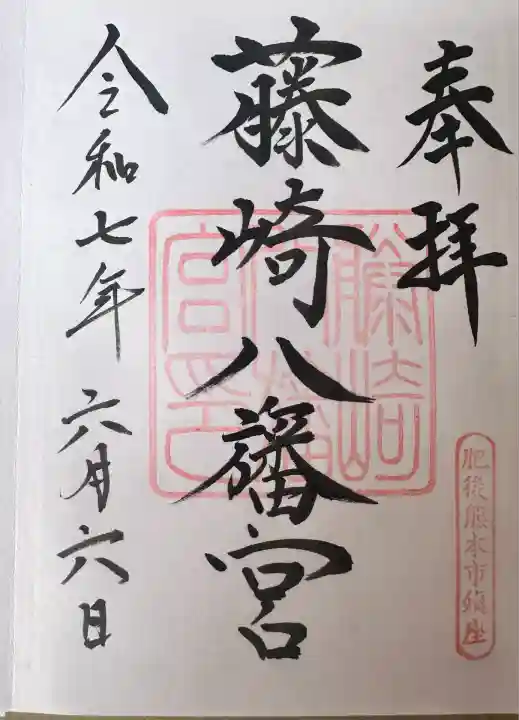 奉拝
肥後熊本市鎮座
藤崎八旛宮
藤崎八旛宮印
令和七年 六月六日